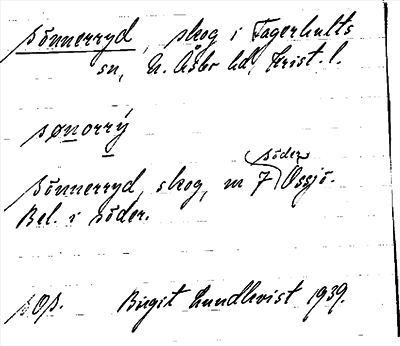 Sönnerryd, skog i Fagerhults
sn, N. Åsbo hd, Krist. l.
sønorrý
Sönnerryd, skog, m 7 söder Össjö.
Bel. i söder.
s Op. Birgit Lundkvist 1939.